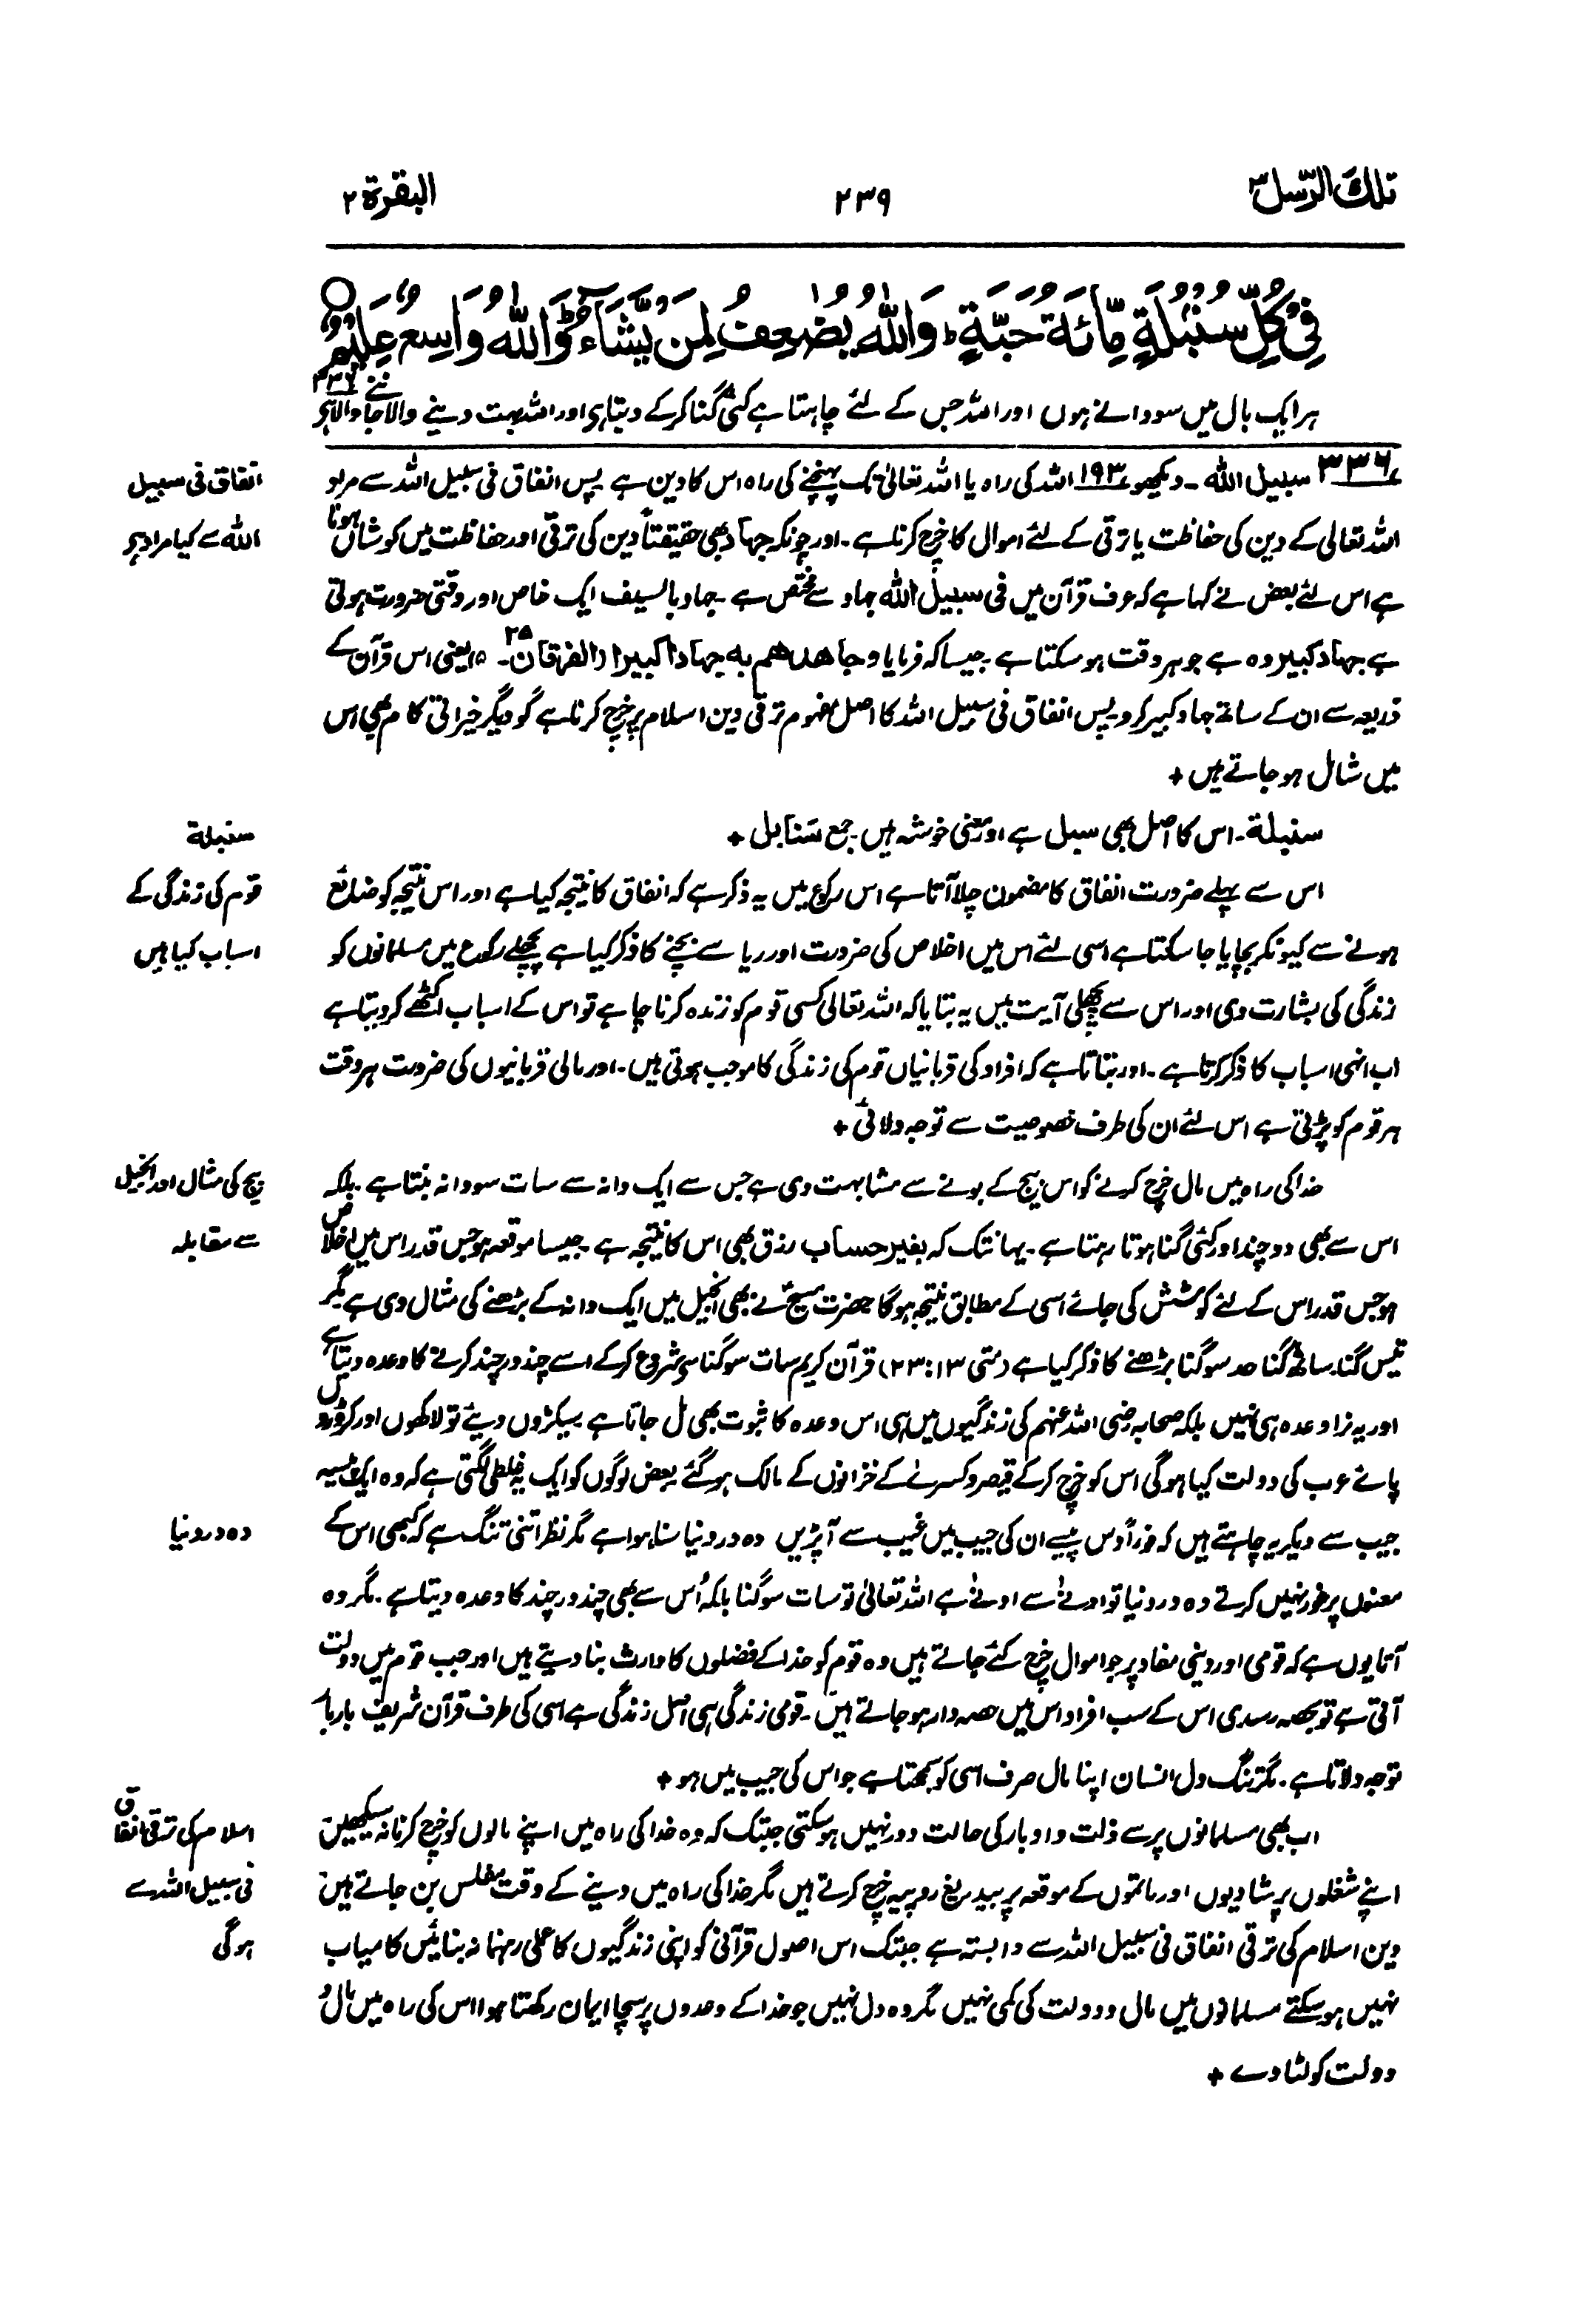 تلك الرّسل ۳
۲۳۹
البقرة ۲
فِيْ كُلِّ سُنْۢبُلَةٍ مِّائَةُ حَبَّةٍ ؕ وَاللّٰهُ يُضٰعِفُ لِمَنْ يَّشَآءُ ؕ وَاللّٰهُ وَاسِعٌ عَلِيْمٌ ○
ہر ایک بال میں سو دانے ہوں اور اللہ جس کے لئے چاہتا ہے کئی گنا کرکے دیتا ہی اور اللہ بہت دینے والا جاننے والا ہی ۳۳۶
۳۳۶ سبیل اللہ ۔ دیکھو ۱۹۳ اللہ کی راہ یا اللہ تعالیٰ تک پہنچنے کی راہ اس کا دین ہے پس انفاق فی سبیل اللہ سے مراد
انفاق فی سبیل
اللہ تعالی کے دین کی حفاظت یا ترقی کے لئے اموال کا خرچ کرنا ہے ۔ اور چونکہ جہاد بھی حقیقتاً دین کی ترقی اور حفاظت میں کوشاں ہونا
اللہ سے کیا مراد ہی
ہے اس لئے بعض نے کہا ہے کہ عرف قرآن میں فی سبیل اللہ جہاد سے مختص ہے ۔ جہاد بالسیف ایک خاص اور وقتی ضرورت ہوتی
ہے جہاد کبیر وہ ہے جو ہر وقت ہو سکتا ہے ۔ جیسا کہ فرمایا وجاهدهم به جهادا كبيرا (الفرقان ۲۵۔ ۵) یعنی اس قرآن کے
ذریعہ سے ان کے ساتھ جہاد کبیر کرو ۔ پس انفاق فی سبیل اللہ کا اصل مفہوم ترقی دین اسلام پر خرچ کرنا ہے گو دیگر خیراتی کام بھی اس
میں شامل ہو جاتے ہیں +
سنبلة ۔ اس کا اصل بھی سبل ہے اور معنی خوشہ ہیں ۔ جمع سَنَابل +
سنبلة
اس سے پہلے ضرورت انفاق کا مضمون چلا آتا ہے اس رکوع میں یہ ذکر ہے کہ انفاق کا نتیجہ کیا ہے اور اس نتیجہ کو ضائع
قوم کی زندگی کے
ہونے سے کیونکر بچایا جا سکتا ہے اسی لئے اس میں اخلاص کی ضرورت اور ریا سے بچنے کا ذکر کیا ہے پچھلے رکوع میں مسلمانوں کو
اسباب کیا ہیں
زندگی کی بشارت دی اور اس سے پچھلی آیت میں یہ بتایا کہ اللہ تعالی کسی قوم کو زندہ کرنا چاہے تو اس کے اسباب اکٹھے کر دیتا ہے
اب انہی اسباب کا ذکر کرتا ہے ۔ اور بتاتا ہے کہ افراد کی قربانیاں قوم کی زندگی کا موجب ہوتی ہیں ۔ اور مالی قربانیوں کی ضرورت ہر وقت
ہر قوم کو پڑتی ہے اس لئے ان کی طرف خصوصیت سے توجہ دلائی +
خدا کی راہ میں مال خرچ کرنے کو اس بیج کے بونے سے مشابہت دی ہے جس سے ایک دانہ سے سات سو دانہ بنتا ہے ۔ بلکہ
بیج کی مثال اور انجیل
اس سے بھی دو چند اور کئی گنا ہوتا رہتا ہے ۔ یہانتک کہ بغیر حساب رزق بھی اس کا نتیجہ ہے ۔ جیسا موقعہ ہو جس قدر اس میں اخلاص
سے مقابلہ
ہو جس قدر اس کے لئے کوشش کی جائے اسی کے مطابق نتیجہ ہوگا حضرت مسیحؑ نے بھی انجیل میں ایک دانہ کے بڑھنے کی مثال دی ہے مگر
تیس گنا ۔ ساٹھ گنا حد سو گنا بڑھنے کا ذکر کیا ہے (متی ۱۳: ۲۳) قرآن کریم سات سو گنا سی شروع کرکے اسے چند در چند کرنے کا وعدہ دیتا ہے
اور یہ نرا وعدہ ہی نہیں بلکہ صحابہ رضی اللہ عنہم کی زندگیوں میں ہی اس وعدہ کا ثبوت بھی مل جاتا ہے سیکڑوں دیئے تو لاکھوں اور کروڑوں
پائے عرب کی دولت کیا ہوگی اس کو خرچ کرکے قیصر و کسرے کے خزانوں کے مالک ہو گئے بعض لوگوں کو ایک یہ غلطی لگتی ہے کہ وہ ایک پیسہ
جیب سے دیکر یہ چاہتے ہیں کہ فوراً دس پیسے ان کی جیب میں غیب سے آپڑیں دہ در دنیا سنا ہوا ہے مگر نظر اتنی تنگ ہے کہ کبھی اس کے
دہ در دنیا
معنوں پر غور نہیں کرتے دہ در دنیا تو ادنےٰ سے ادنےٰ ہے اللہ تعالیٰ تو سات سو گنا بلکہ اُس سے بھی چند در چند کا وعدہ دیتا ہے ۔ مگر وہ
آتا یوں ہے کہ قومی اور دینی مفاد پر جو اموال خرچ کئے جاتے ہیں وہ قوم کو خدا کے فضلوں کا وارث بنا دیتے ہیں اور جب قوم میں دولت
آتی ہے تو بحصہ رسدی اس کے سب افراد اس میں حصہ دار ہو جاتے ہیں ۔ قومی زندگی ہی اصل زندگی ہے اسی کی طرف قرآن شریف بار بار
توجہ دلاتا ہے ۔ مگر تنگ دل انسان اپنا مال صرف اسی کو سمجھتا ہے جو اس کی جیب میں ہو +
اب بھی مسلمانوں پر سے ذلت و ادبار کی حالت دور نہیں ہو سکتی جبتک کہ وہ خدا کی راہ میں اپنے مالوں کو خرچ کرنا نہ سیکھیں
اسلام کی ترقی انفاق
اپنے شغلوں پر شادیوں اور ماتموں کے موقعہ پر بیدریغ روپیہ خرچ کرتے ہیں مگر خدا کی راہ میں دینے کے وقت مفلس بن جاتے ہیں
فی سبیل اللہ سے
دین اسلام کی ترقی انفاق فی سبیل اللہ سے وابستہ ہے جبتک اس اصول قرآنی کو اپنی زندگیوں کا عملی رہنما نہ بنائیں کامیاب
ہوگی
نہیں ہو سکتے مسلمانوں میں مال و دولت کی کمی نہیں مگر وہ دل نہیں جو خدا کے وعدوں پر سچا ایمان رکھتا ہوا اس کی راہ میں مال و
دولت کو لٹا دے +